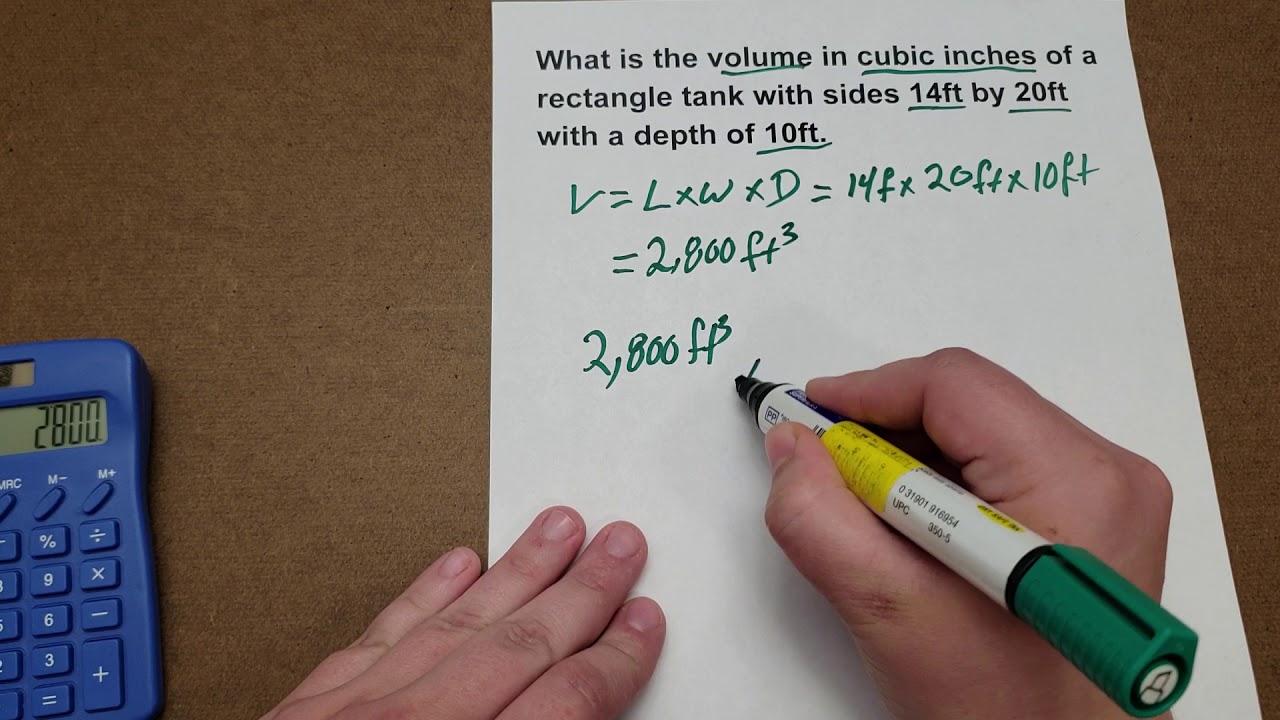 What is the volume in cubic inches of a
rectangle tank with sides 14ft by 20ft
with a depth of 10ft.
V = L x W x D = 14f x 20ft x 10ft
= 2,800 ft³
2,800 ft³
2800.
MRC M− M+
% ÷
9 ×
6 −
3 +
=
PP
0 31901 916954
UPC 350-5